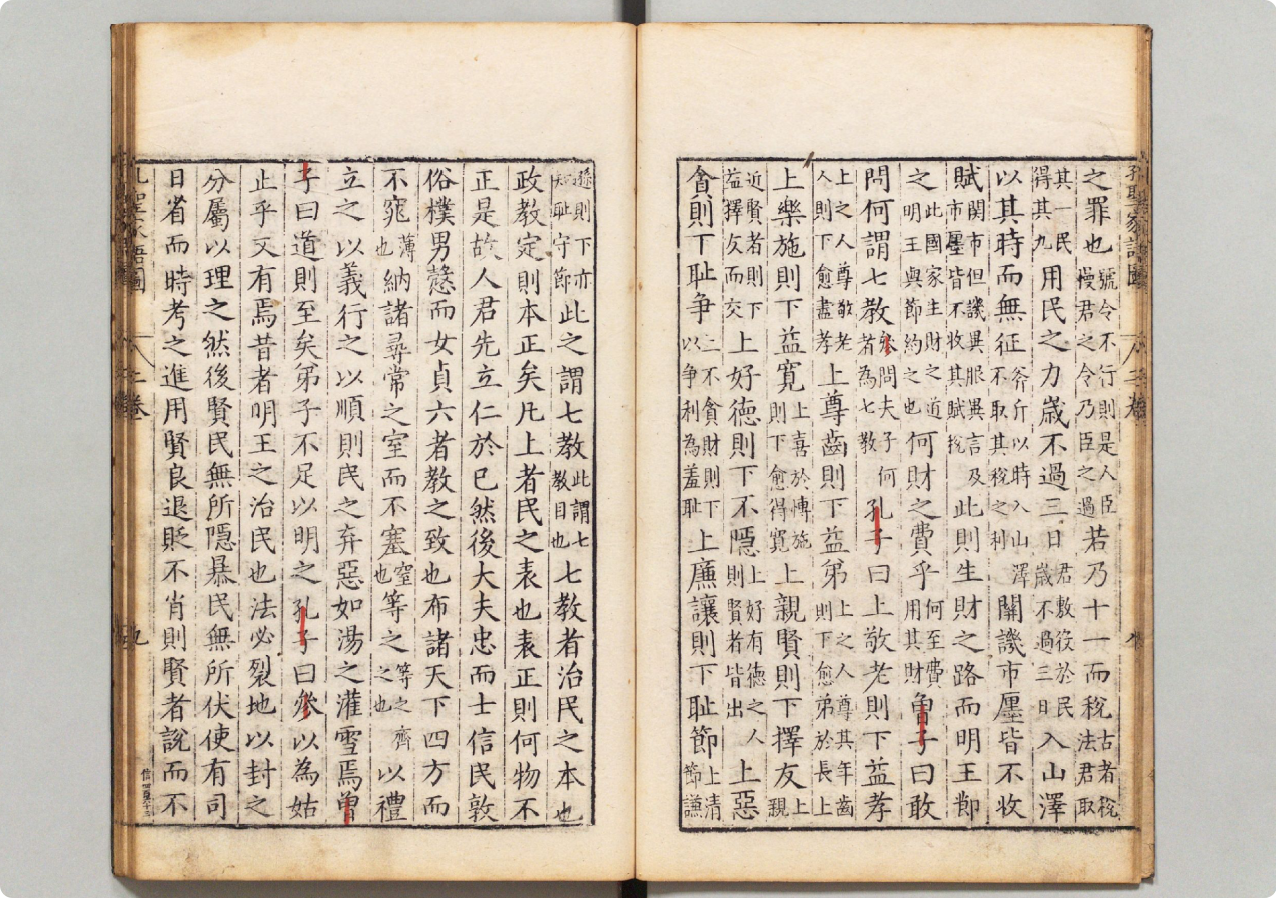 之罪也號令不行則是人臣慢君之令乃臣之過若乃十一而稅古者稅法君取
其一民得其九用民之力歲不過三日君敷役於民歲不過三日入山澤
以其時而無征斧斤以時入山澤不取其稅之利關譏市廛皆不收
賦關市但譏異服異言及市廛皆不收其賦稅此則生財之路而明王節
之此國家生財之道明王與節約之也何財之費乎何至費用其財曾子曰敢
問何謂七教參問夫子何者為七教孔子曰上敬老則下益孝
上之人尊敬老人則下愈盡孝上尊齒則下益弟上之人尊其年齒則下愈弟於長上
上樂施則下益寬上喜於博施則下愈得寬上親賢則下擇友上親
近賢者則下益擇友而交上好德則下不隱上好有德之人則賢者皆出上惡
貪則下耻爭上不貪財則下以爭利為羞耻上廉讓則下耻節上清節謙
遜則下亦知耻守節此之謂七教此謂七教目也七教者治民之本也
政教定則本正矣凡上者民之表也表正則何物不
正是故人君先立仁於已然後大夫忠而士信民敦
俗樸男慤而女貞六者教之致也布諸天下四方而
不窕薄也納諸尋常之室而不塞窒也等之等之齊之也以禮
立之以義行之以順則民之弃惡如湯之灌雪焉曾
子曰道則至矣弟子不足以明之孔子曰參以為姑
止乎又有焉昔者明王之治民也法必裂地以封之
分屬以理之然後賢民無所隱暴民無所伏使有司
日省而時考之進用賢良退貶不肖則賢者說而不